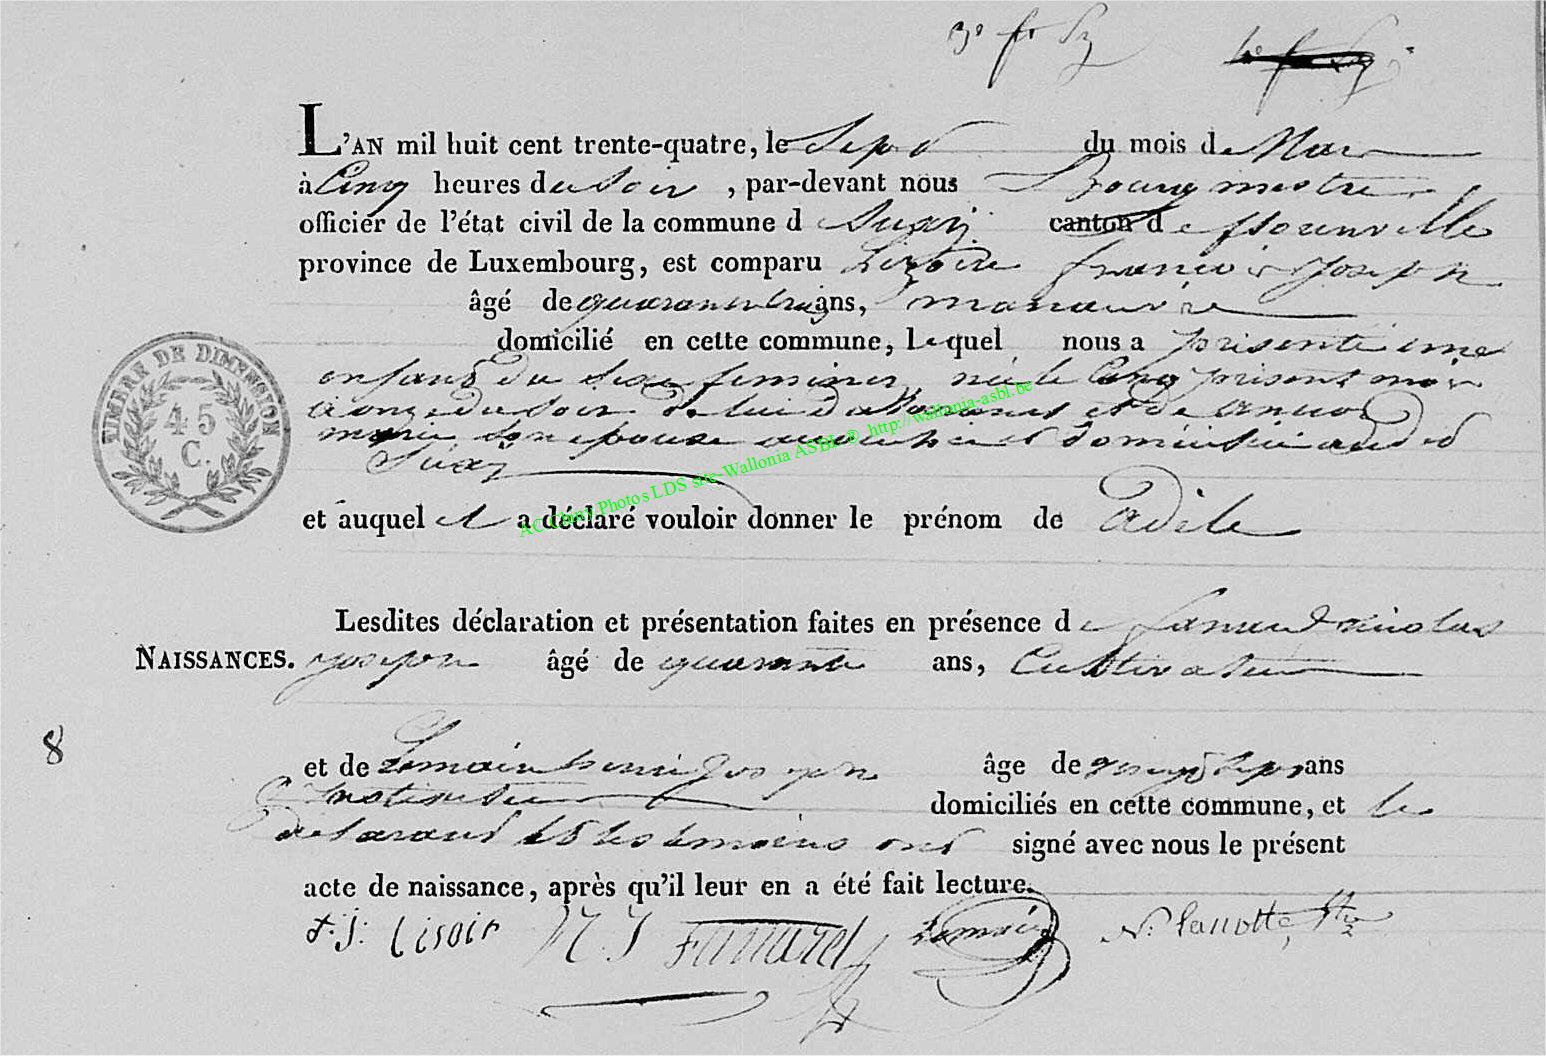 L'AN mil huit cent trente-quatre, le Sept du mois de Mars
à Cinq heures du Soir, par-devant nous Bourgmestre
officier de l'état civil de la commune d Suxy canton de florenville
province de Luxembourg, est comparu françois Joseph
âgé de quarante trois ans, manœuvre
domicilié en cette commune, Lequel nous a présenté une
enfant du sexe feminin, née le Cinq présent mois
à onze du soir de lui déclarant et de
marie son epouse domiciliée audit
Suxy
et auquel il a déclaré vouloir donner le prénom de Adele
Lesdites déclaration et présentation faites en présence de nicolas
NAISSANCES. joseph âgé de quarante ans, Cultivateur
8
et de Lemaire henri Joseph âge de vingt sept ans
Instituteur domiciliés en cette commune, et le
declarant et les temoins ont signé avec nous le présent
acte de naissance, après qu'il leur en a été fait lecture.
f. j. lisoir N J Fanard Lemaire N. lanotte,
TIMBRE DE DIMENSION
45
C.
AC Chiny Photos LDS site-Wallonia ASBL® http://wallonia-asbl.be